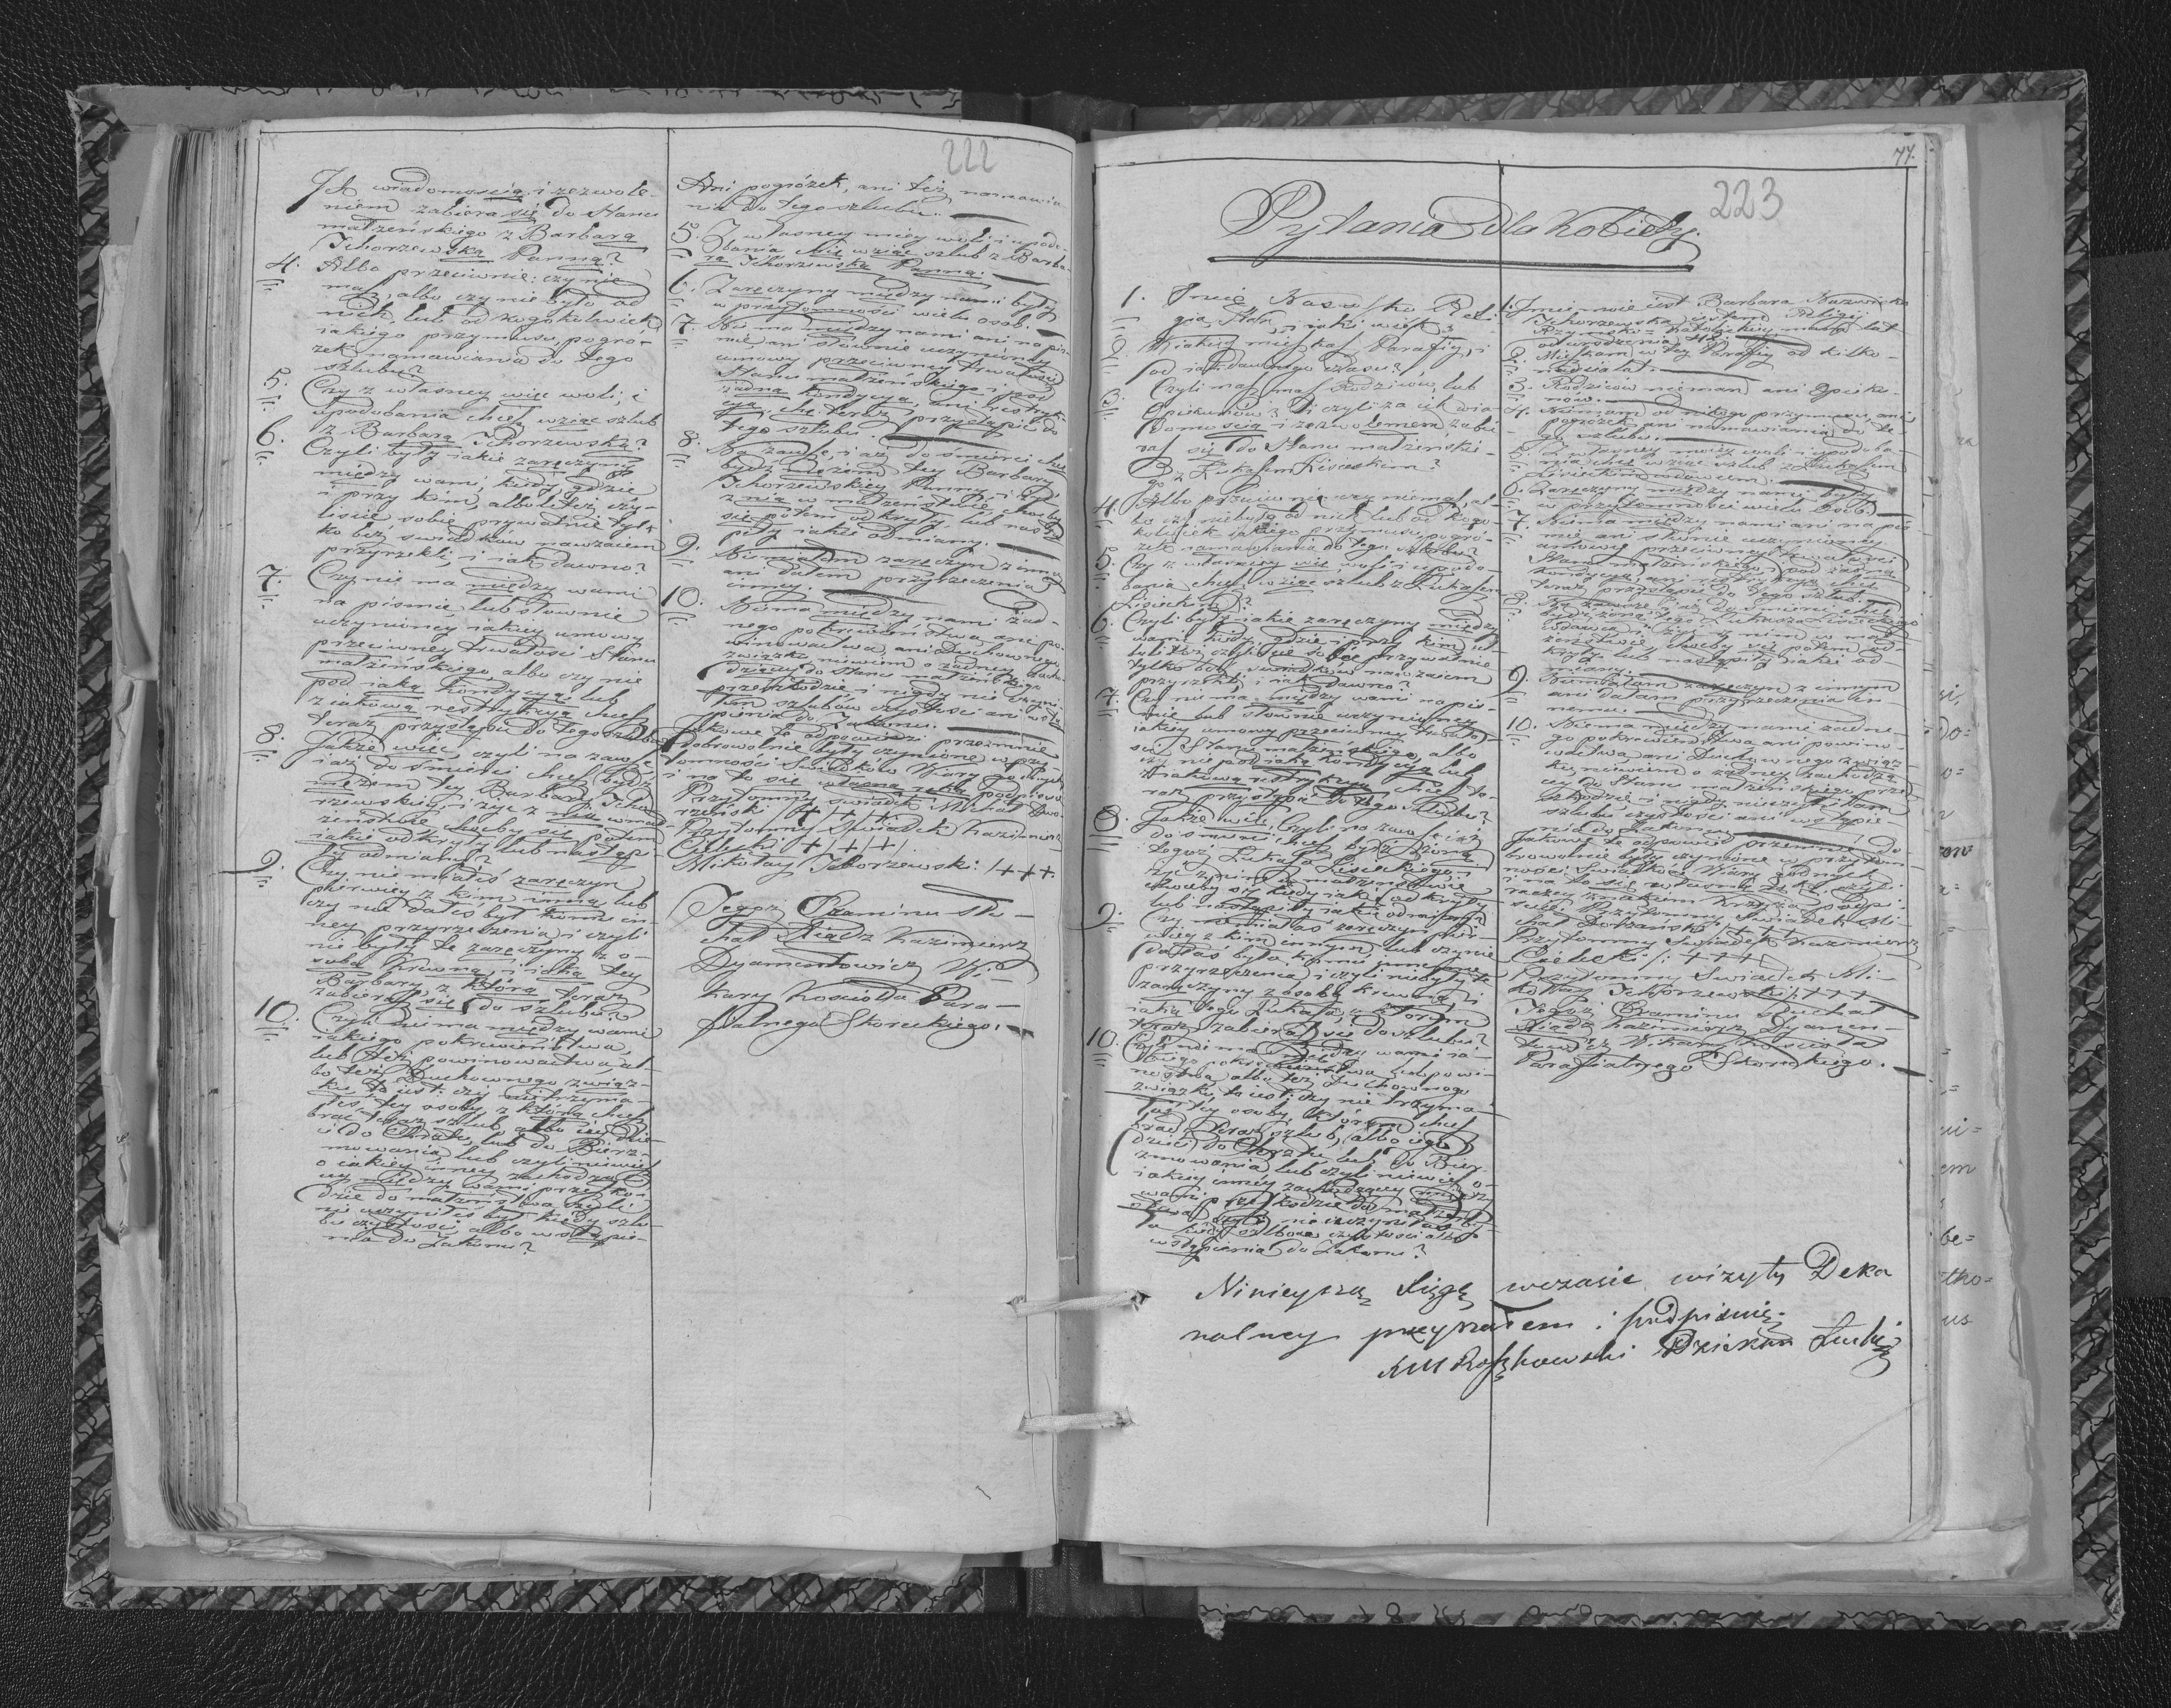 222
Ich wiadomością i zezwole-
niem zabiera się do Stanu
małżeńskiego z Barbarą
Tchorzewską Panną?
4. Albo przeciwnie: czy nie
masz, albo czy nie było od
nich lub od kogokolwiek
iakiego przymusu, pogro-
żek namawiania do tego
szlubu?
5. Czy z własney więc woli, i
upodobania chcesz wziąć szlub
z Barbarą Tchorzewską?
6. Czyli były iakie zaręczyny
między wami, kiedy, gdzie
i przy kim, albo też czy-
liście sobie prywatnie tyl-
ko bez świadków nawzaiem
przyrzekli, i iak dawno?
7. Czy nie ma między wami
na piśmie lub słownie
uczynioney iakiey umowy
przeciwney trwałości Stanu
małżeńskiego albo czy nie
pod iaką kondycyą lub
z iakową restrykcyą chcesz
teraz przystąpić do tego szlubu?
8. Jakże więc, czyli na zawsze
i aż do śmierci chcesz bydź
mężem tey Barbary Tcho-
rzewskiey i żyć z nią w mał-
żeństwie choćby się potem
iakie odkryły lub nastąpi-
ły odmiany?
9. Czy nie miałeś zaręczyn
pierwiey z kim inną lub
czy nie dałeś był komu in-
ney przyrzeczenia i czyli
nie były te zaręczyny z o-
sobą krewną i iaką tey
Barbary z którą teraz
zabierasz się do szlubu?
10. Czyli nie ma między wami
iakiego pokrewieństwa,
lub też powinowactwa al-
bo też Duchownego związ-
ku to iest: czy nie trzyma-
łeś tey osoby z którą chcesz
brać teraz szlub, albo iey dzie-
ci do Chrztu, lub do Bierz-
mowania lub czyli nie wiesz
o iakiey inney zachodzą-
cey między wami przeszko-
dzie do małżeństwa czyli
nie uczyniłeś był kiedy szlu-
bu czystości albo wstąpie-
nia do Zakonu?
Ani pogróżek, ani też namawia-
nia do tego szlubu.
5. Z własney moiey woli i upodo-
bania chcę wziąć szlub z Barba-
rą Tchorzewską Panną.
6. Zaręczyny między nami były
w przytomności wielu osób.
7. Nie ma między nami ani na piś-
mie ani słownie uczynioney
umowy przeciwney trwałości
Stanu małżeńskiego i pod
żadną kondycyą, ani restryk-
cyą, chcę teraz przystąpić do
tego szlubu.
8. Na zawsze, i aż do śmierci chcę
bydź mężem tey Barbary
Tchorzewskiey Panny, i żyć
z nią w małżeństwie choćby
się potem odkryły lub nastą-
piły iakie odmiany.
9. Nie miałem zaręczyn z inną
ani dałem przyrzeczenia
inney.
10. Nie ma między nami żad-
nego pokrewieństwa ani po-
winowactwa, ani Duchownego
związku, niewiem o żadney zacho-
dzącey do Stanu małżeńskiego
przeszkodzie i nigdy nie czyni-
łem szlubów czystości ani wstą-
pienia do Zakonu.
Jakowe te odpowiedzi przezemnie
dobrowolnie były czynione w przy-
tomności Swiadków Wiary godnych
i na to się własną ręką podpisuię
Przytomny świadek Michał Dwo-
rzeński /+/+/+/
Przytomny Swiadek Kazimierz
Cielecki +/+/+/.
Mikołay Tchorzewski: /+++.
Tegoż Examinu słu-
chał Xiądz Kazimierz
Dyamentowicz Wi-
kary Kościoła Para-
fialnego Skoreckiego.
77.
223
Pytania dla Kobiety.
1. Imię Nazwisko Reli-
gia, Stan, i iaki wiek?
2. W iakiey mieszkasz Parafii, i
od iak dawnego czasu?
3. Czyli masz Rodziców, lub
Opiekunów? i czyli za ich wia-
domością i zezwoleniem zabie-
rasz się do Stanu małżeńskie-
go z Łukaszem Lisieckim?
4. Albo przeciwnie czy nie masz al-
bo czy niebyło od nich lub od kogo-
kolwiek iakiego przymusu, pogró-
żek namawiania do tego szlubu?
5. Czy z własney więc woli i upodo-
bania chcesz wziąć szlub z Łukaszem
Lisieckim?
6. Czyli były iakie zaręczyny między
wami, kiedy, gdzie i przy kim al-
bo też czyliście sobie prywatnie
tylko bez świadków nawzaiem
przyrzekli, i iak dawno?
7. Czy nie ma między wami na piś-
mie lub słownie uczynioney
iakiey umowy przeciwney trwało-
ści Stanu małżeńskiego, albo
czy nie pod iaką kondycyą lub
z iakową restrykcyą chcesz te-
raz przystąpić do tego szlubu?
8. Jakże więc czyli na zawsze i aż
do śmierci chcesz bydź żoną
tegoż Łukasza Lisieckiego i
żyć z nim w małżeństwie
choćby się kiedy iakie odkryły
lub nastąpiły iakie odmiany?
9. Czy nie miałaś zaręczyn pier-
wiey z kim innym, lub czy nie
dałaś była komu innemu
przyrzeczenia i czyli niebyły te
zaręczyny z osobą krewną i
iaką tego Łukasza, z którym
teraz zabierasz się do szlubu?
10. Czyli nie ma między wami ia-
kiego pokrewieństwa lub powi-
nowactwa albo też Duchownego
związku, to iest: czy nie trzyma-
łaś tey osoby, z którą chcesz
brać teraz szlub, albo iego
dzieci do Chrztu lub do Bierz-
mowania lub czyli niewiesz o
iakiey inney zachodzącey między
wami przeszkodzie do małżeń-
stwa czyli nie uczyniłaś by-
ła kiedy szlubu czystości albo
wstąpienia do Zakonu?
1. Imie moie iest Barbara Nazwisko
Tchorzewska iestem Religii
Rzymsko-Katolickiey mam lat
od urodzenia
2. Mieszkam w tey Parafii od kilko-
nastu lat.
3. Rodziców nie mam ani Opieku-
nów.
4. Niemam od nikogo przymusu, ani
pogróżek ani namawiania do te-
go szlubu.
5. Z własney moiey woli i upodoba-
nia chcę wziąć szlub z Łukaszem
Lisieckim wdowcem.
6. Zaręczyny między nami były
w przytomności wielu osób.
7. Niema między nami ani na piś-
mie ani słownie uczynioney
umowy przeciwney trwałości
Stanu małżeńskiego i pod żadną
kondycyą ani restrykcyą chcę
teraz przystąpić do tego szlubu.
8. Na zawsze i aż do śmierci chcę
bydź żoną tego Łukasza Lisieckiego
wdowca i żyć z nim w mał-
żeństwie choćby się potem od-
kryły lub nastąpiły iakie od-
miany.
9. Niemiałam zaręczyn z innym
ani dałam przyrzeczenia in-
nemu.
10. Niema między nami żadne-
go pokrewieństwa ani powino-
wactwa, ani Duchownego związ-
ku, niewiem o żadney zachodzą-
cey do Stanu małżeńskiego prze-
szkodzie i nigdy nieczyniłam
szlubu czystości ani wstąpie-
nia do Zakonu.
Jakowe te odpowiedzi przezemnie do-
browolnie były czynione w przytom-
ności Swiadków Wiary godnych
i na to się własną ręką czyli
raczey znakiem krzyża podpi-
suię. Przytomny Swiadek Mi-
chał Dworzański +++
Przytomny Swiadek Kazimierz
Cielecki /: +++
Przytomny Swiadek Mi-
kołay Tchorzewski: +++
Tegoż Examinu słuchał
Xiądz Kazimierz Dyamen-
towicz Wikary Kościoła
Parafialnego Skoreckiego.
Ninieyszą Xięgę wczasie wizyty Deka
nalney przeyrzałem i podpisuię.
Dziekan